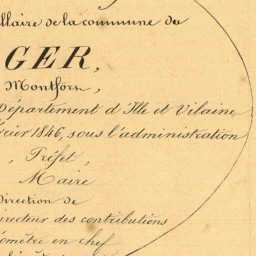 llaire de la commune de
GER,
Montfort,
Département d'Ille et Vilaine,
rier 1846, sous l'administration
, Préfet,
Maire
Direction de
irecteur des contributions
omètre en chef